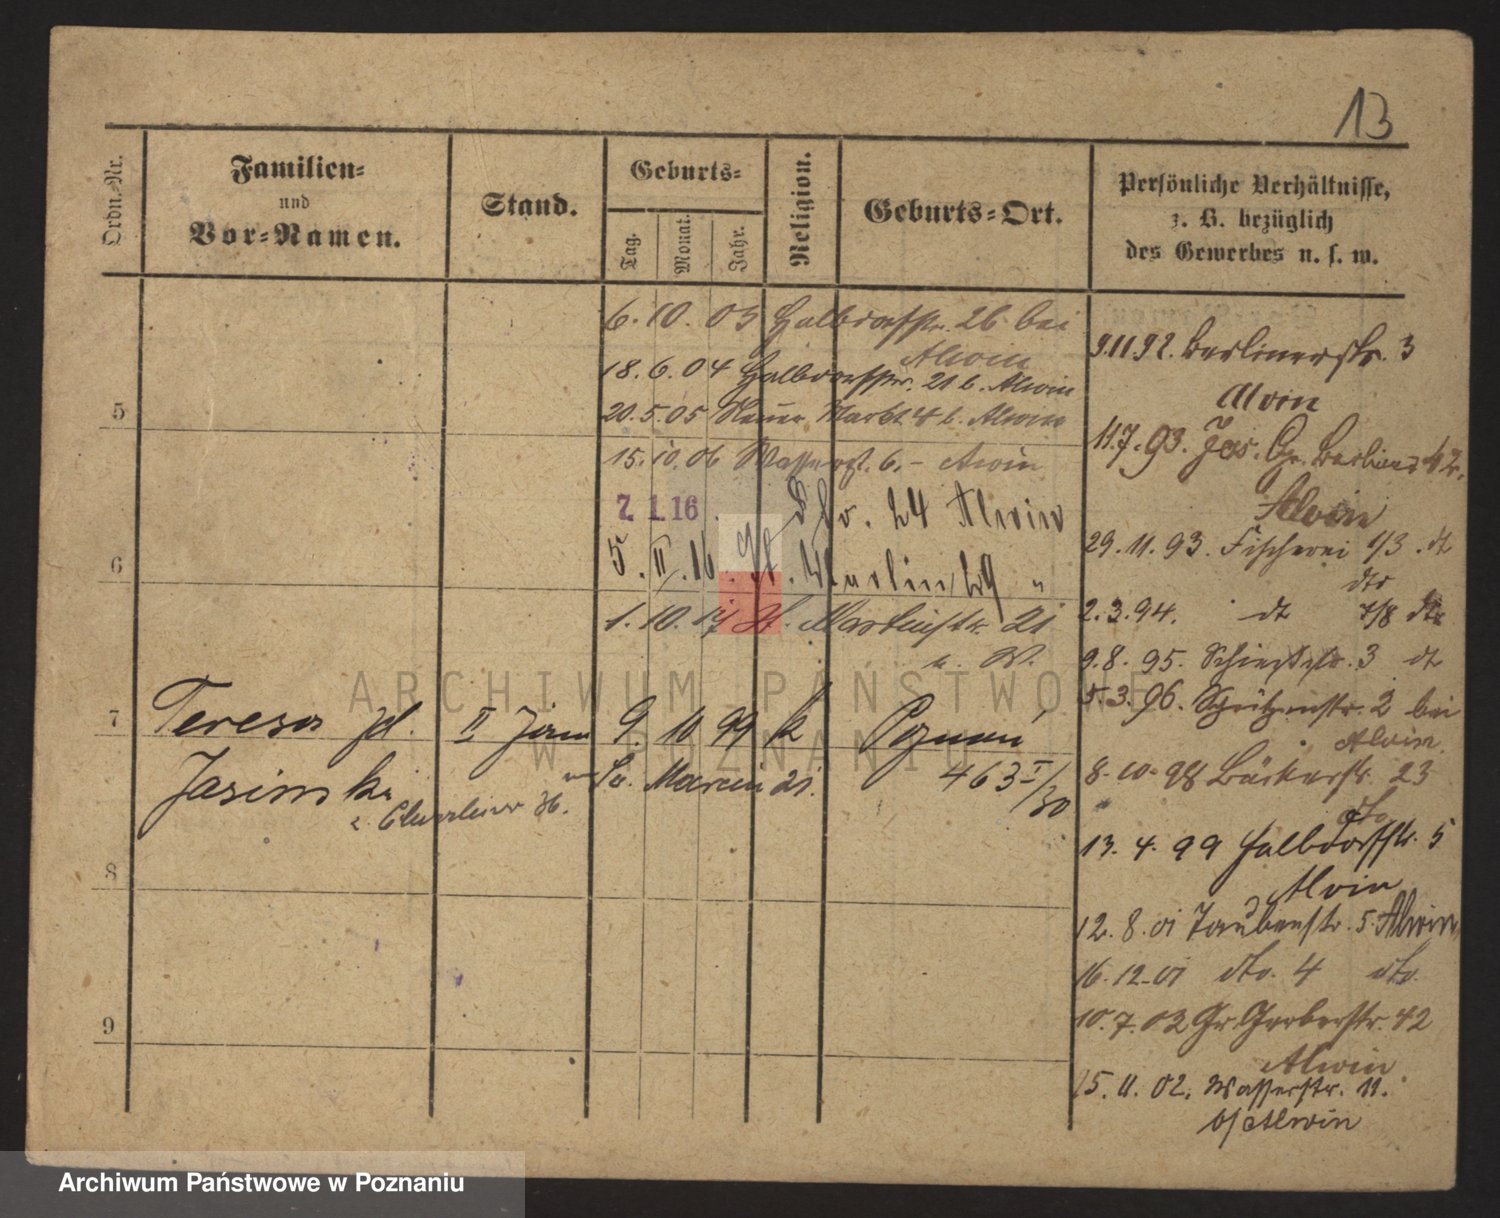 13
Ordn.-Nr.
Familien-
und
Vor-Namen.
Stand.
Geburts-
Tag.
Monat.
Jahr.
Religion.
Geburts-Ort.
Persönliche Verhältnisse,
z. B. bezüglich
des Gewerbes u. s. w.
6. 10. 03 Halbdorfstr. 26 bei
Alwin
18. 6. 04 Halbdorfstr. 21 b. Alwin
20. 5. 05 Neuer Markt 4 b. Alwin
15. 10. 06 Wasserstr. 6. – Alwin
7. 1. 16. 24 Alwin
5. II. 16. St. Martin
1. 10. 17 St. Martinstr. 21
5
6
7
8
9
Teresa
II Jan 9. 10 99 k Poznań
Jasinski
Św. Marcin 21.
463 I/30
9.11.92. Berlinerstr. 3
Alvin
11.7.93.
Alvin
29.11.93. Fischerei 1/3. dt
dto
2.3.94. dt 7/8 dto
9.8.95. 3 dt
5.3.96. Schützenstr. 2 bei
Alwin.
8.10.98 Bäckerstr. 23
dto
13. 4. 99 Halbdorfstr. 5
Alvin
12. 8. 01 Taubenstr. 5. Alwin
16. 12. 01 dto. 4 dto.
10. 7. 02 Gr. Gerberstr. 42
Alwin
15. 11. 02. Wasserstr. 11.
b/Alwin
ARCHIWUM PAŃSTWOWE
W POZNANIU
Archiwum Państwowe w Poznaniu